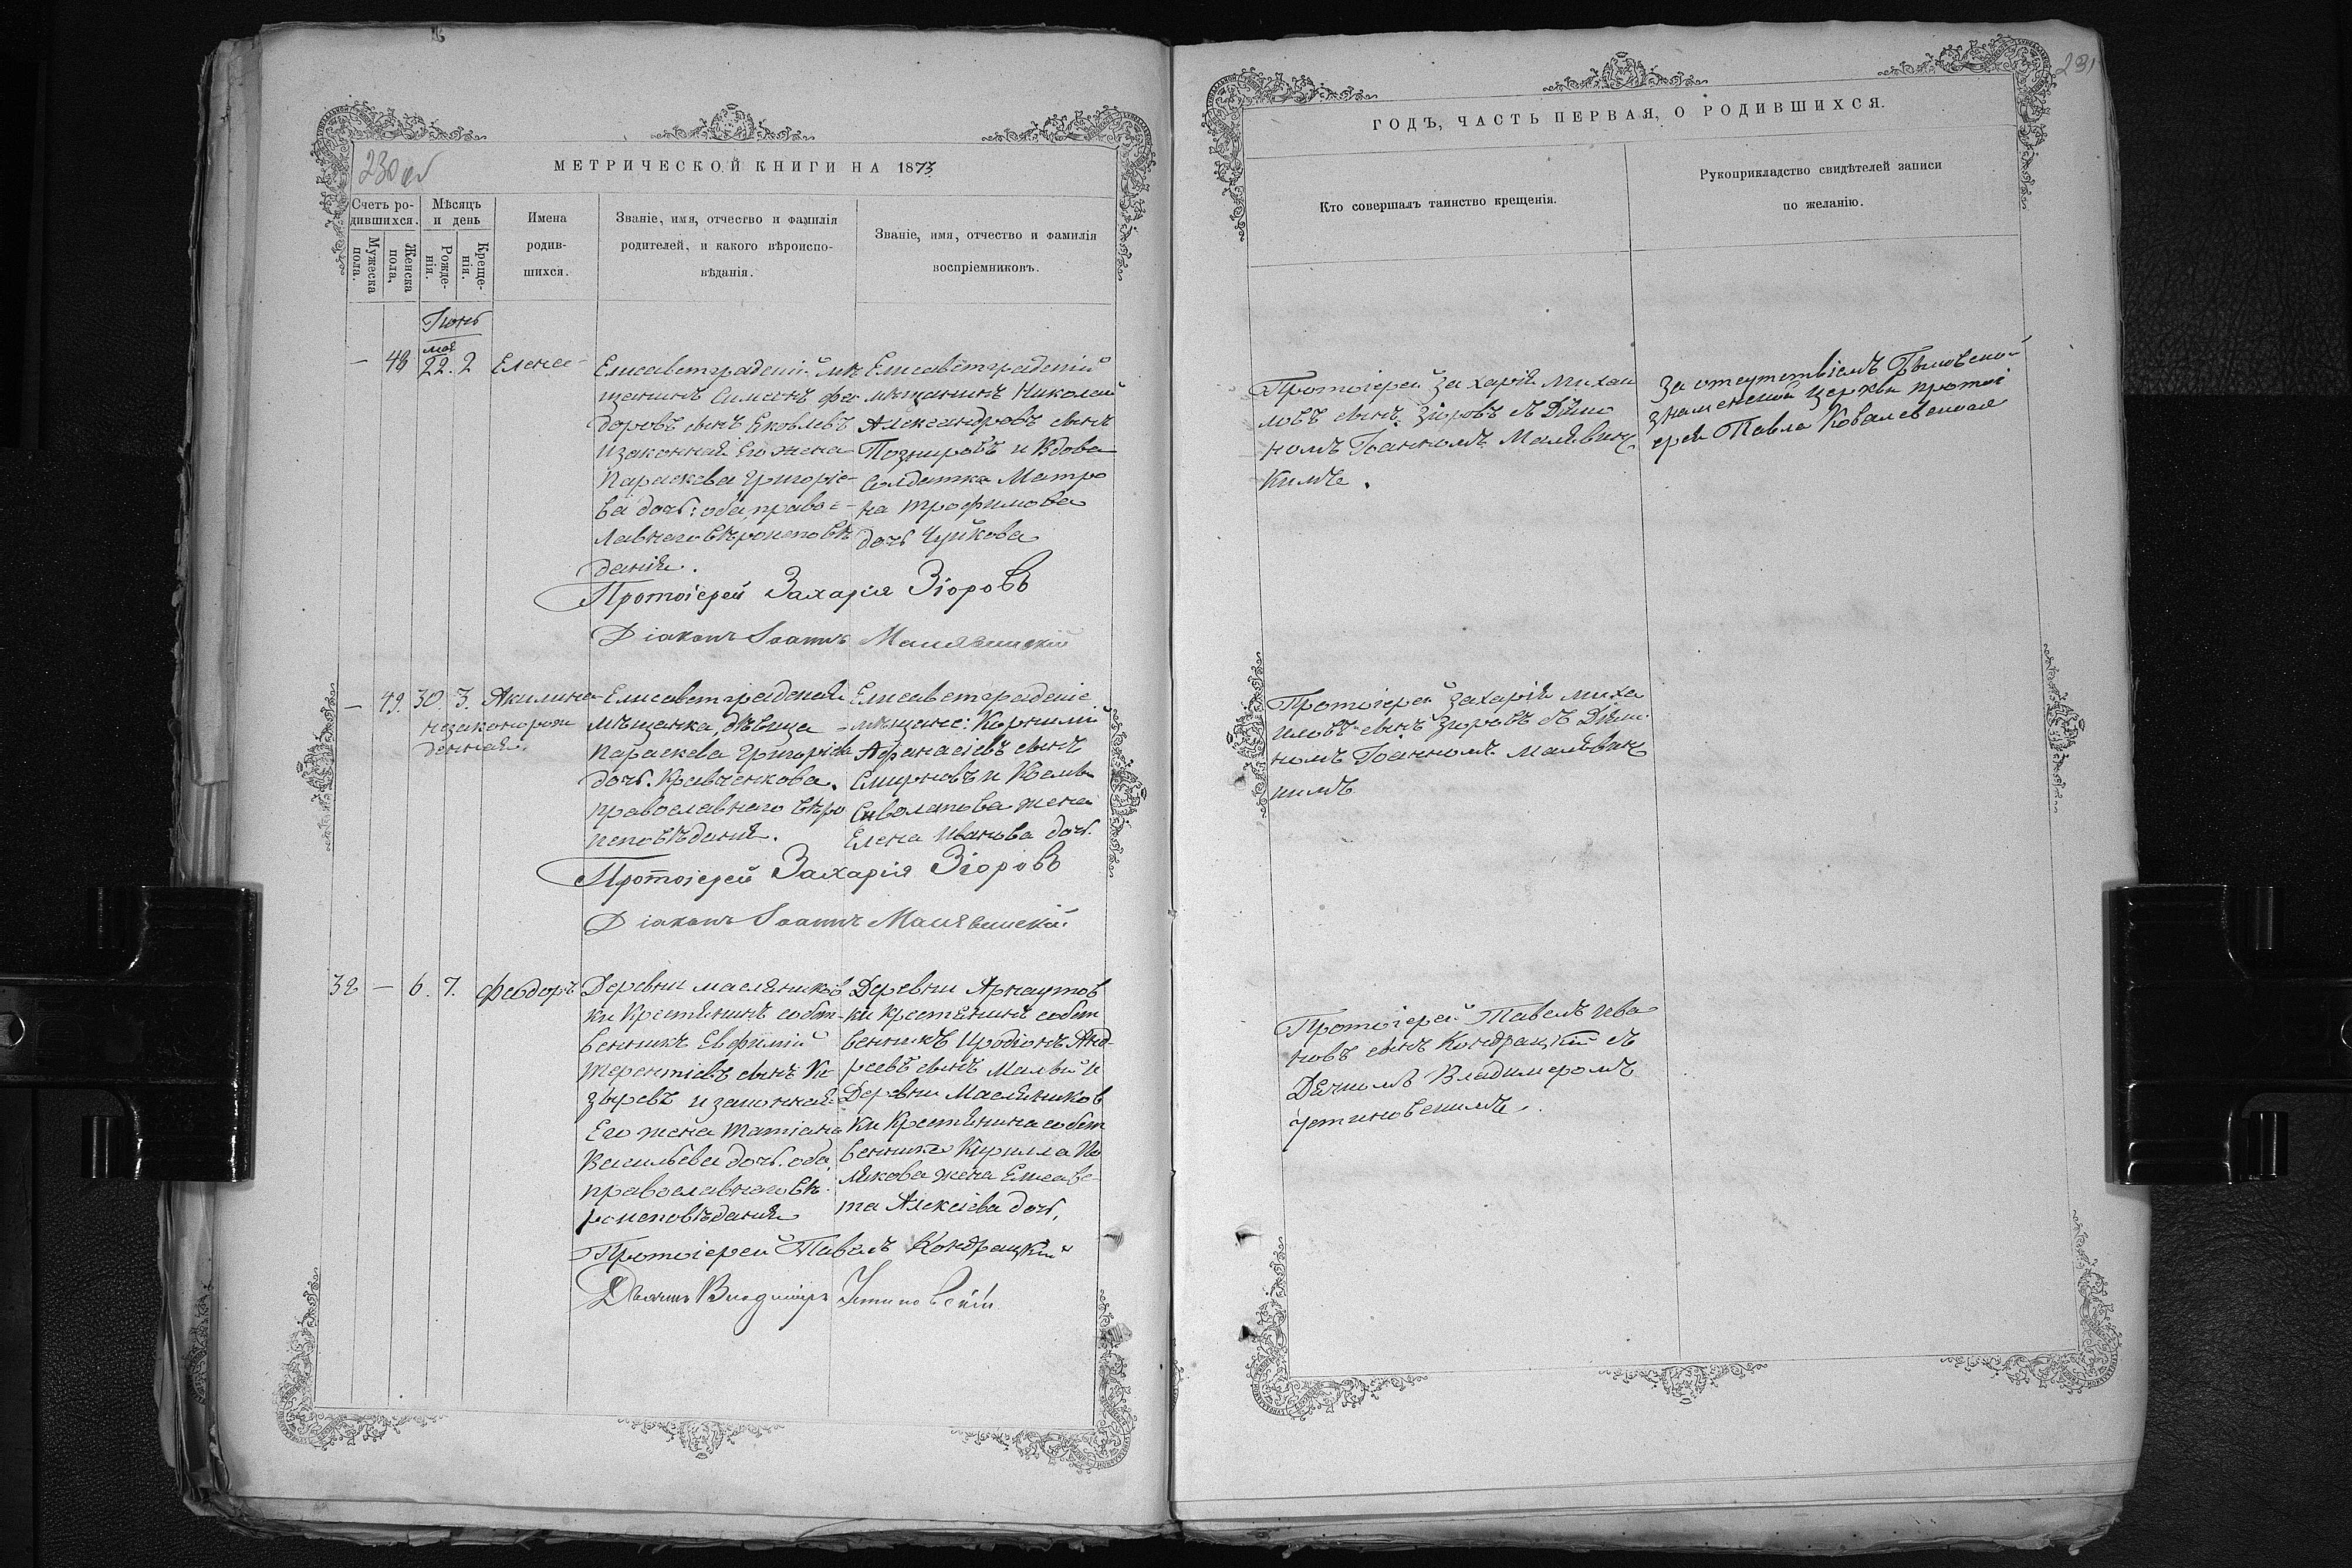 230 об
МЕТРИЧЕСКОЙ КНИГИ НА 1873
Счетъ ро-
дившихся.
Мужеска
пола.
Женска
пола.
Мѣсяцъ
и день
Рожде-
нія.
Креще-
нія.
Имена
родив-
шихся.
Званіе, имя, отчество и фамилія
родителей, и какого вѣроиспо-
вѣданія.
Званіе, имя, отчество и фамилія
воспріемниковъ.
Іюнь
мая
— 48 22. 2 Елена
Елисаветградскій мѣ
щанинъ Симеонъ Фео
доровъ сынъ Яковлевъ
и законная Его жена
Параскева Григоріе-
ва дочь: оба правос-
лавнаго вѣроисповѣ
данія.
Елисаветградскій
мѣщанинъ Николай
Александровъ сынъ
и Вдова
Солдатка Матро
на Трофимова
дочь Чуйкова
Протоіерей Захарія Зіоровъ
Діаконъ Іоаннъ Малявинскій
— 49. 30. 3. Акилина
незаконорож
денная.
Елисаветградская
мѣщанка, дѣвица
Параскева Григоріева
дочь Кравченкова.
православнаго вѣро
исповѣданія.
Елисаветградскіе
мѣщане: Корнилій
Афанасіевъ сынъ
Смирновъ и
Сиволапова жена
Елена Иванова дочь.
Протоіерей Захарія Зіоровъ
Діаконъ Іоаннъ Малявинскій
32 — 6. 7. Феодоръ
Деревни Масляников
ки Крестьянинъ собст-
венникъ Евфимій
Терентіевъ сынъ Ко-
зыревъ и законная
Его жена Татіана
Васильева дочь. оба
православнаго вѣ-
роисповѣданія
Деревни Арнаутов
ки крестьянинъ собст
венникъ Иродіонъ Анд-
реевъ сынъ Малый и
Деревни Масляников
ки Крестьянина собст
венника Кирилла По
лякова жена Елисаве-
та Алексіева дочь,
Протоіерей Павелъ Кондрацкій
Дьячекъ Владиміръ Устиновскій
231
ГОДЪ, ЧАСТЬ ПЕРВАЯ, О РОДИВШИХСЯ.
Кто совершалъ таинство крещенія.
Рукоприкладство свидѣтелей записи
по желанію.
Протоіерей Захарія Михаи
ловъ сынъ Зіоровъ съ Діако
номъ Іоанномъ Малявинс
кимъ.
За отсутствіемъ
знаменской церкви протоі
ерея Павла Ковалевскаго
Протоіерей Захарія Миха
иловъ сынъ Зіоровъ съ Діако
номъ Іоанномъ Малявинс
кимъ
Протоіерей Павелъ Ива
новъ сынъ Кондрацкій съ
Дячкомъ Владимеромъ
Устиновскимъ.